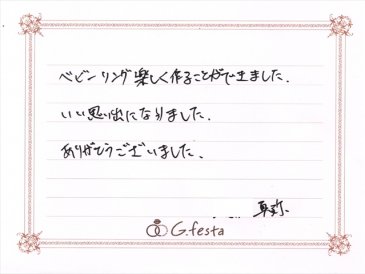 ベビーリング楽しく作ることができました.
いい思い出になりました.
ありがとうございました.
G.festa